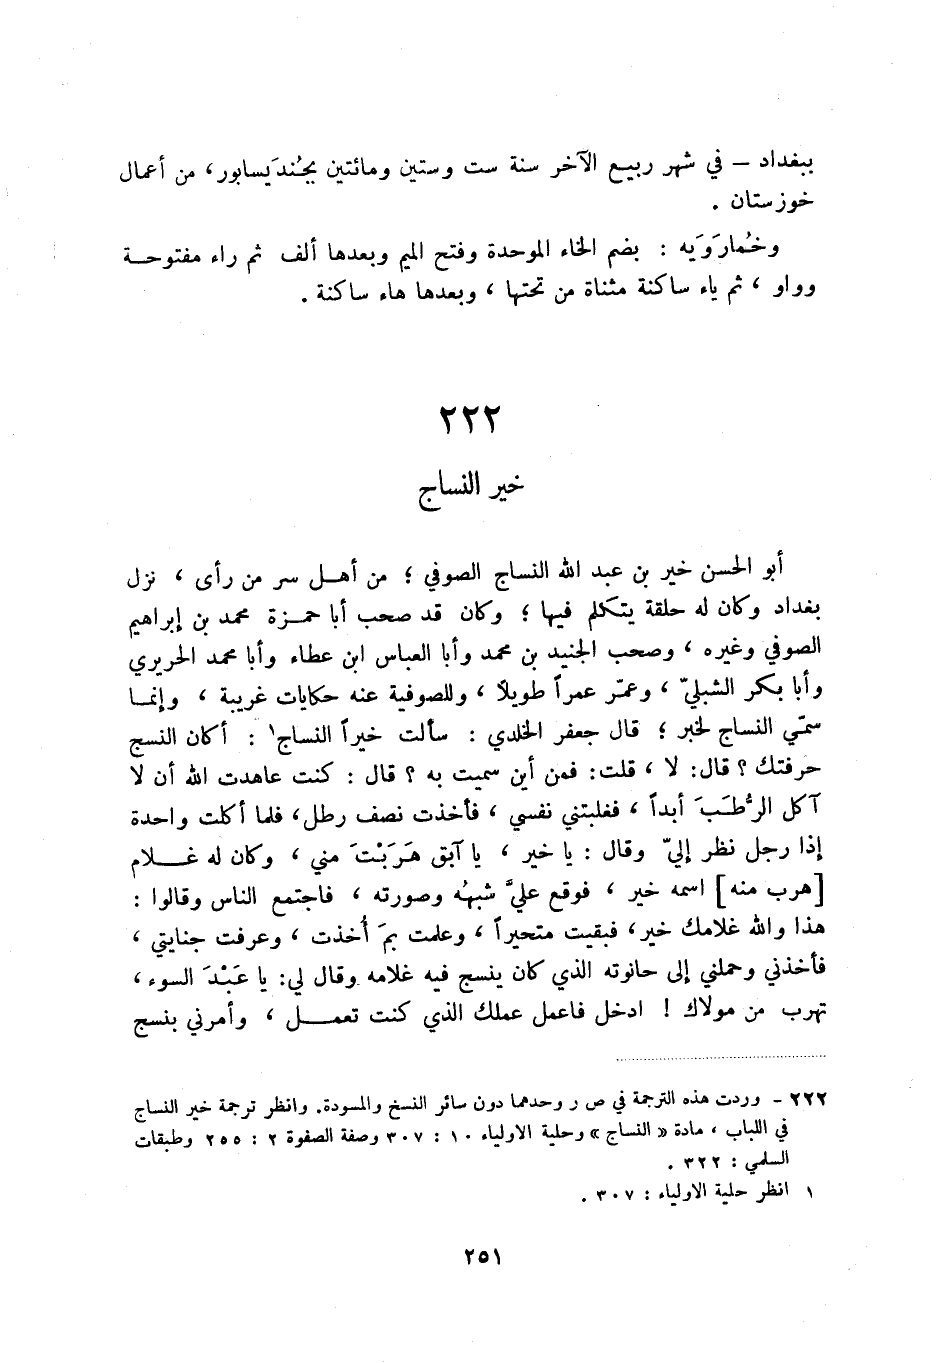 ببغداد – في شهر ربيع الآخر سنة ست وستين ومائتين بجُنْدَيسابور، من أعمال
خوزستان .
وخُمارَوَيه : بضم الخاء الموحدة وفتح الميم وبعدها ألف ثم راء مفتوحة
وواو ، ثم ياء ساكنة مثناة من تحتها ، وبعدها هاء ساكنة .
٢٢٢
خير النساج
أبو الحسن خير بن عبد الله النساج الصوفي ؛ من أهل سر من رأى ، نزل
بغداد وكان له حلقة يتكلم فيها ؛ وكان قد صحب أبا حمزة محمد بن إبراهيم
الصوفي وغيره ، وصحب الجنيد بن محمد وأبا العباس ابن عطاء وأبا محمد الحريري
وأبا بكر الشبليّ ، وعمّر عمراً طويلاً ، وللصوفية عنه حكايات غريبة ، وإنما
سمّي النساج لخبر ؛ قال جعفر الخلدي : سألت خيراً النساج١ : أكان النسج
حرفتك ؟ قال: لا ، قلت: فمن أين سميت به ؟ قال : كنت عاهدت الله أن لا
آكل الرُّطَبَ أبداً ، فغلبتني نفسي ، فأخذت نصف رطل، فلما أكلت واحدة
إذا رجل نظر إليّ وقال : يا خير ، يا آبق هَرَبْتَ مني ، وكان له غلام
[هرب منه] اسمه خير ، فوقع عليَّ شبهُه وصورته ، فاجتمع الناس وقالوا :
هذا والله غلامك خير، فبقيت متحيراً ، وعلمت بمَ أُخذت ، وعرفت جنايتي ،
فأخذني وحملني إلى حانوته الذي كان ينسج فيه غلامه وقال لي: يا عَبْدَ السوء ،
تهرب من مولاك ! ادخل فاعمل عملك الذي كنت تعمل ، وأمرني بنسج
٢٢٢ – وردت هذه الترجمة في ص ر وحدهما دون سائر النسخ والمسودة. وانظر ترجمة خير النساج
في اللباب ، مادة « النساج » وحلية الاولياء ١٠ : ٣٠٧ وصفة الصفوة ٢ : ٢٥٥ وطبقات
السلمي : ٣٢٢ .
١ انظر حلية الاولياء : ٣٠٧ .
٢٥١